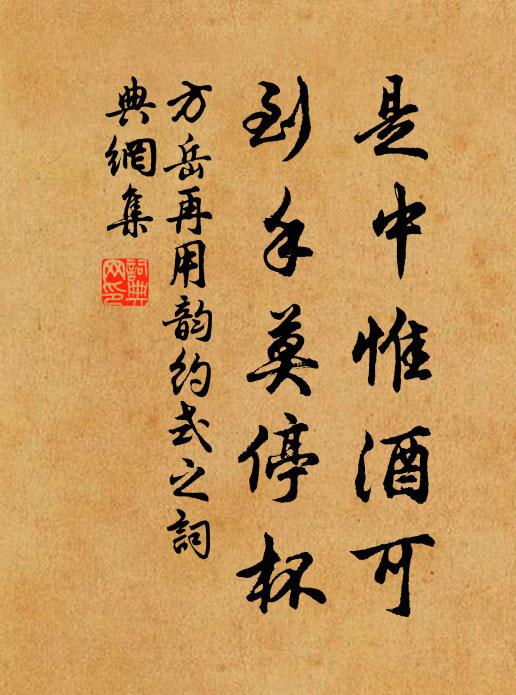 是中惟酒可
到手莫停杯
方岳再用韵约式之詞
典網集
詞典
网印